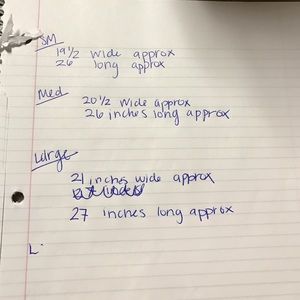 SM
19 1/2 wide approx
26 long approx
Med
20 1/2 wide approx
26 inches long approx
Large
21 inches wide approx
27 inches long approx
L